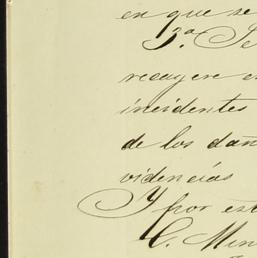 en que se
3.a Se
recayere e
incidentes
de los dañ
videncias
Y por est
C. Min